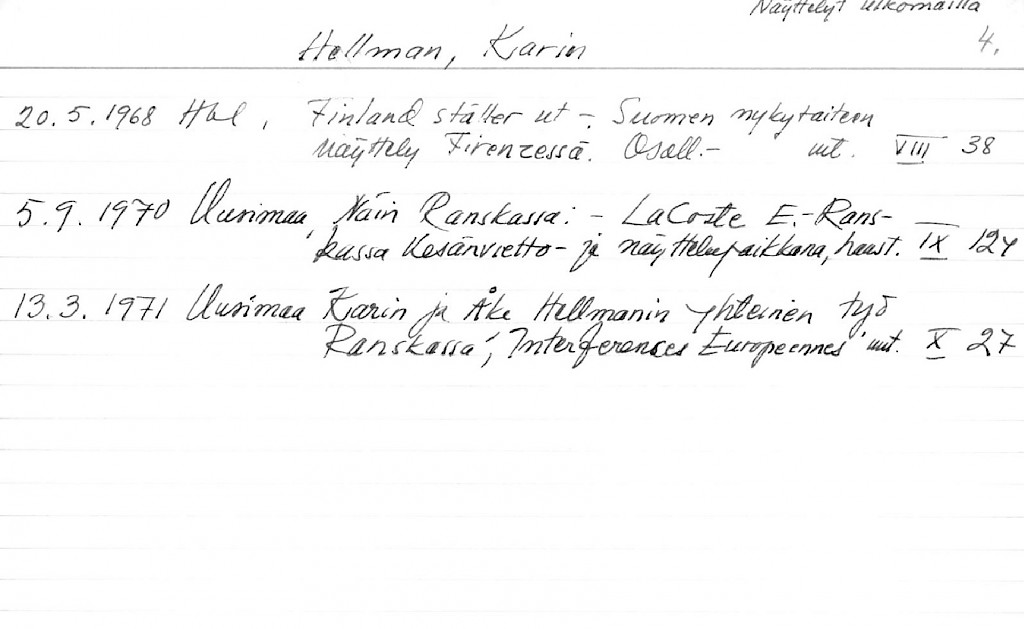 Näyttelyt ulkomailla
4.
Hellman, Karin
20.5.1968 Hbl, Finland ställer ut -. Suomen nykytaiteen
näyttely Firenzessä. Osall.- uut. VIII 38
5.9.1970 Uusimaa, Näin Ranskassa: - LaCoste E.-Rans-
kassa kesänvietto- ja näyttelypaikkana, haast. IX 124
13.3.1971 Uusimaa Karin ja Åke Hellmanin yhteinen työ
Ranskassa, "Interferenses Europeennes" uut. X 27